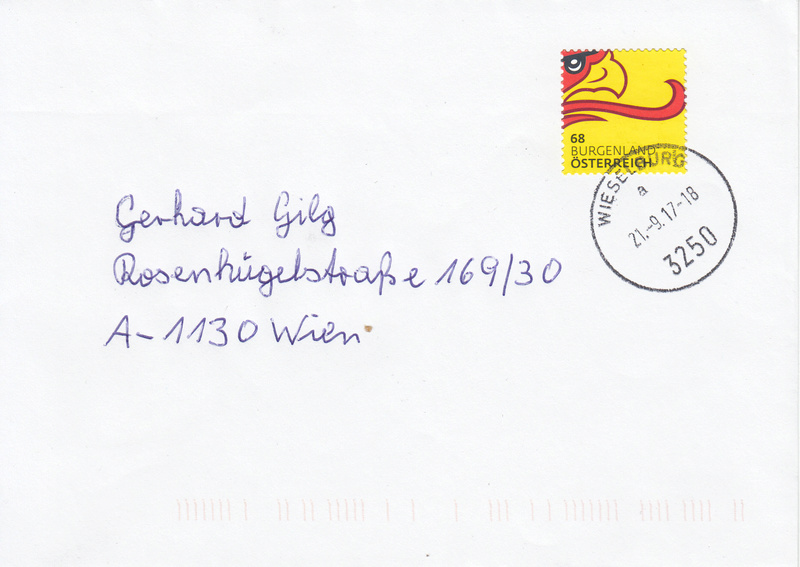 68
BURGENLAND
ÖSTERREICH
WIESELBURG
a
21.-9.17-18
3250
Gerhard Gilg
Rosenhügelstraße 169/30
A-1130 Wien